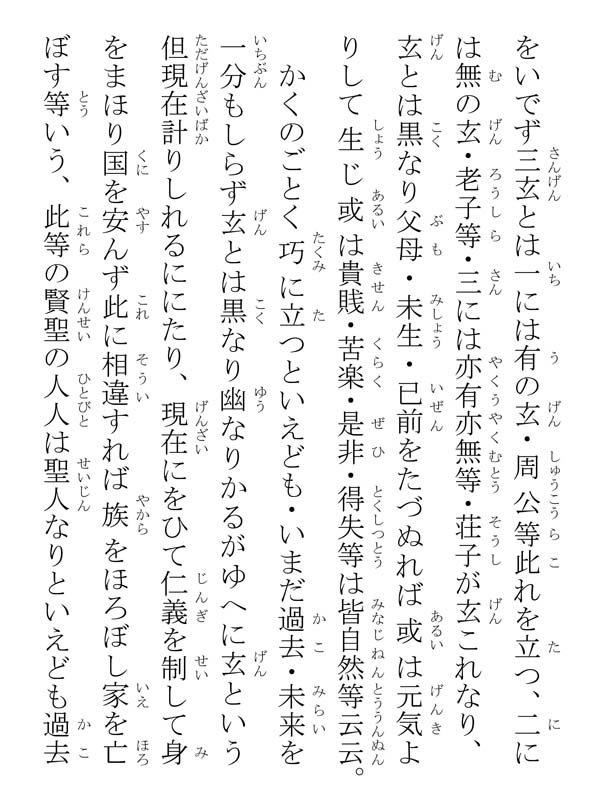 をいでず三玄とは一には有の玄・周公等此れを立つ、二に
は無の玄・老子等・三には亦有亦無等・荘子が玄これなり、
玄とは黒なり父母・未生・已前をたづぬれば或は元気よ
りして生じ或は貴賎・苦楽・是非・得失等は皆自然等云云。
かくのごとく巧に立つといえども・いまだ過去・未来を
一分もしらず玄とは黒なり幽なりかるがゆへに玄という
但現在計りしれるににたり、現在にをひて仁義を制して身
をまほり国を安んず此に相違すれば族をほろぼし家を亡
ぼす等いう、此等の賢聖の人人は聖人なりといえども過去